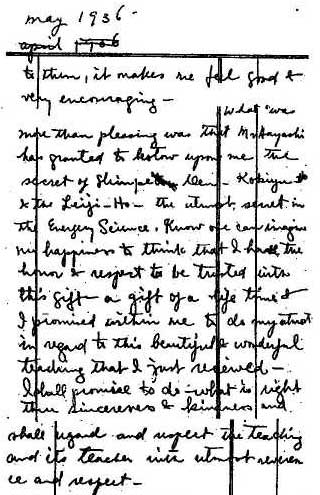 may 1936.
april 1936
to them, it makes me feel good &
very encouraging -
What was
more than pleasing was that Mr Hayashi
has granted to bestow upon me the
secret of Shinpe Den - Kokiyu
& the Leiji-Ho - the utmost secret in
the Energy Science, Know one can imagine
my happiness to think that I have the
honor & respect to be trusted with
this gift - a gift of a life time &
I promised within me to do my utmost
in regard to this beautiful & wonderful
teaching that I just received -
I shall promise to do - what is right
thru sincereness & kindness and
shall regard and respect the teaching
and its teacher with utmost reveren
ce and respect -